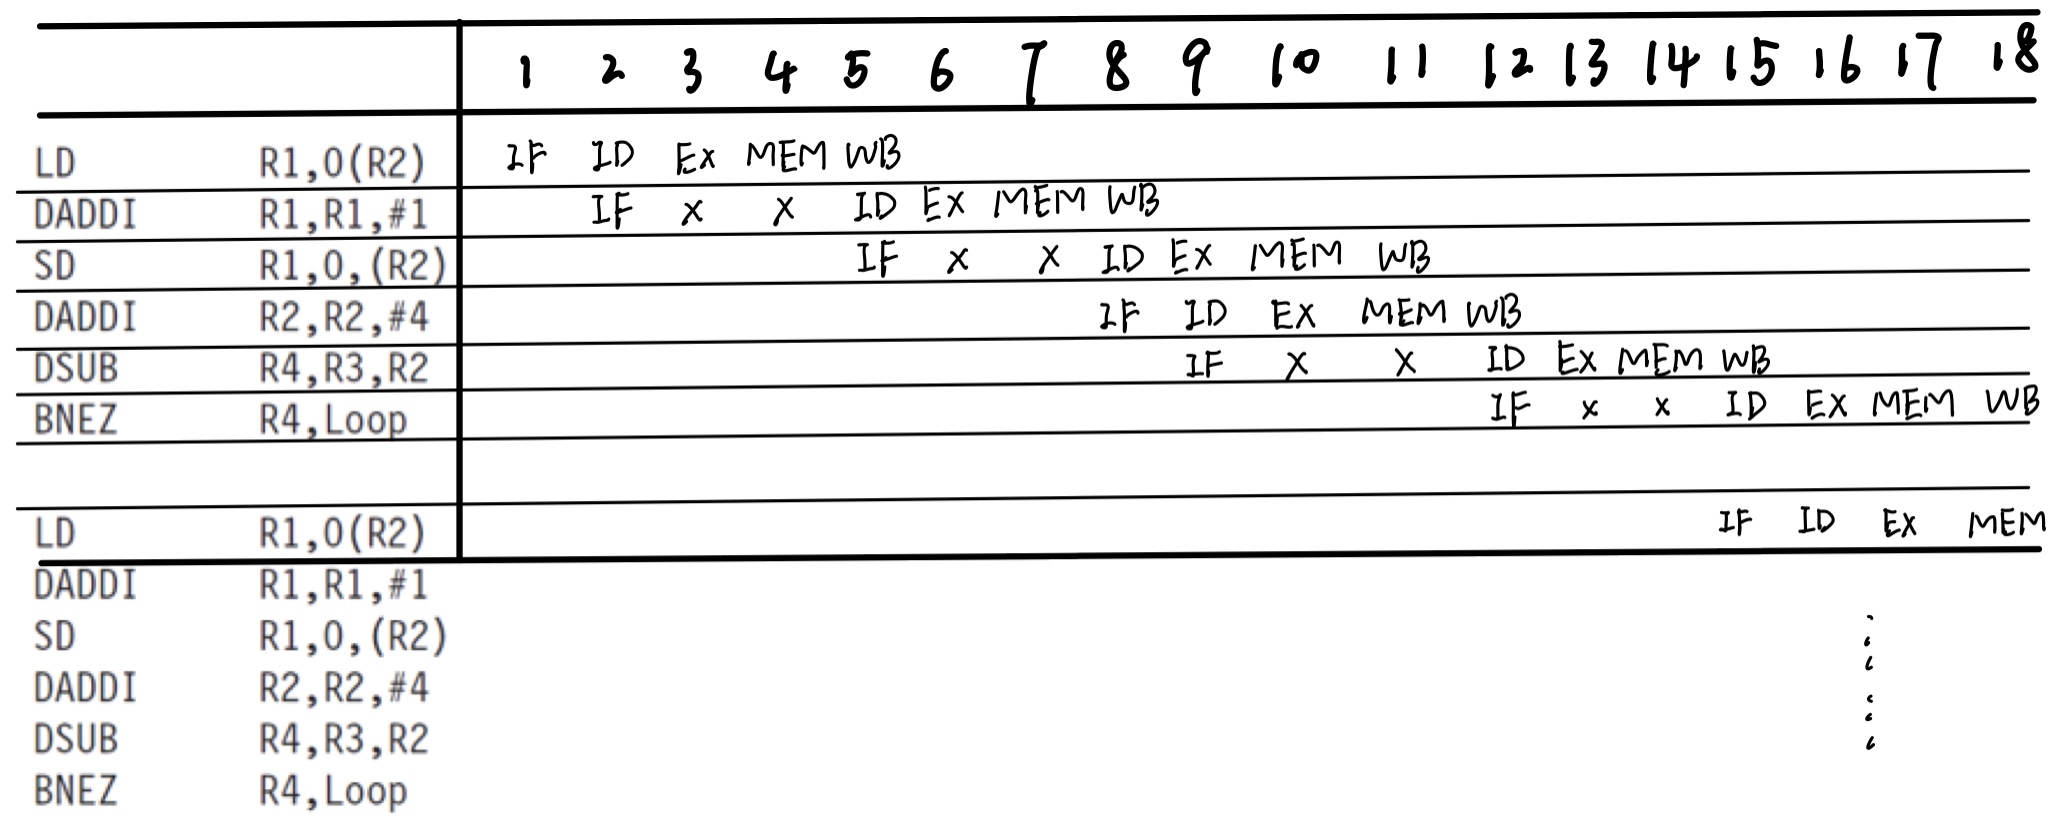 1 2 3 4 5 6 7 8 9 10 11 12 13 14 15 16 17 18
LD R1,0(R2) IF ID Ex MEM WB
DADDI R1,R1,#1 IF x x ID Ex MEM WB
SD R1,0,(R2) IF x x ID Ex MEM WB
DADDI R2,R2,#4 IF ID Ex MEM WB
DSUB R4,R3,R2 IF x x ID Ex MEM WB
BNEZ R4,Loop IF x x ID Ex MEM WB
LD R1,0(R2) IF ID Ex MEM
DADDI R1,R1,#1
SD R1,0,(R2)
DADDI R2,R2,#4
DSUB R4,R3,R2
BNEZ R4,Loop